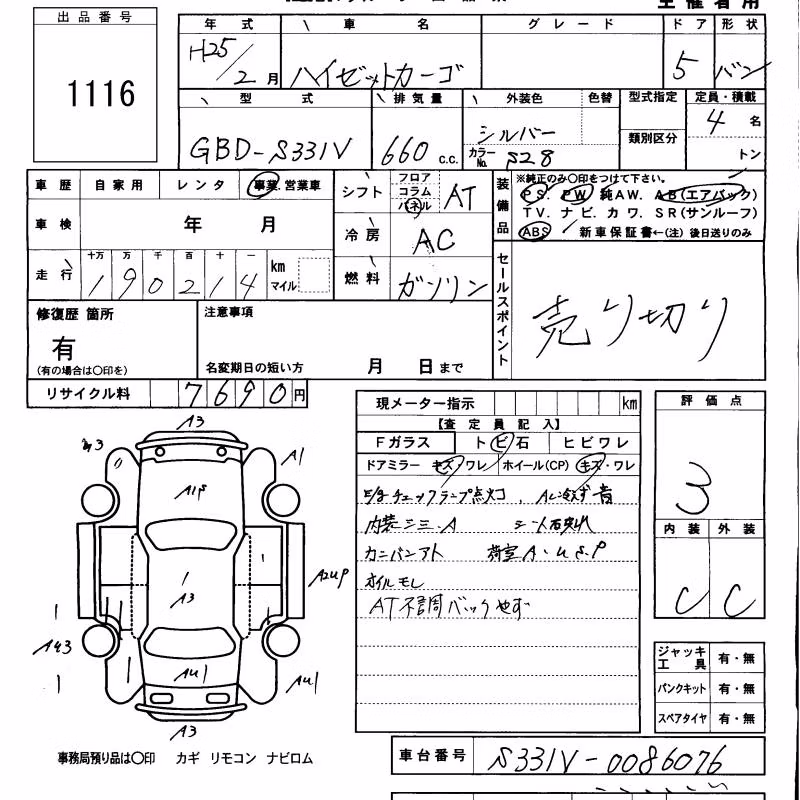 出品番号
1116
年式 車名 グレード ドア 形状
H25/2月 ハイゼットカーゴ 5 バン
型式 排気量 外装色 色替 型式指定 定員・積載
GBD-S331V 660 c.c. シルバー カラーNo. S28 類別区分 4名
トン
車歴 自家用 レンタ 事業.営業車
車検 年 月
走行 十万 万 千 百 十 一 km
190214 マイル
シフト フロア コラム パネル AT
冷房 AC
燃料 ガソリン
装備品 ※純正のみ○印をつけて下さい。
PS. PW. 純AW. AB(エアバック)
TV. ナビ. カワ. SR(サンルーフ)
ABS 新車保証書←(注) 後日送りのみ
セールスポイント
売り切り
修復歴 箇所
有
(有の場合は○印を)
注意事項
名変期日の短い方 月 日まで
リサイクル料 7690円
現メーター指示 km
【査定員記入】
Fガラス トビ石 ヒビワレ
ドアミラー キズ・ワレ ホイール(CP) キズ・ワレ
チェックランプ点灯
内装 A
カンバンアト 荷室
オイルモレ
AT不調バックせず
評価点
3
内装 外装
C C
A3
A1
A1P
A3
A2UP
A43
AU1
AU1
A3
ジャッキ工具 有・無
パンクキット 有・無
スペアタイヤ 有・無
事務局預り品は○印 カギ リモコン ナビロム
車台番号 S331V-0086076